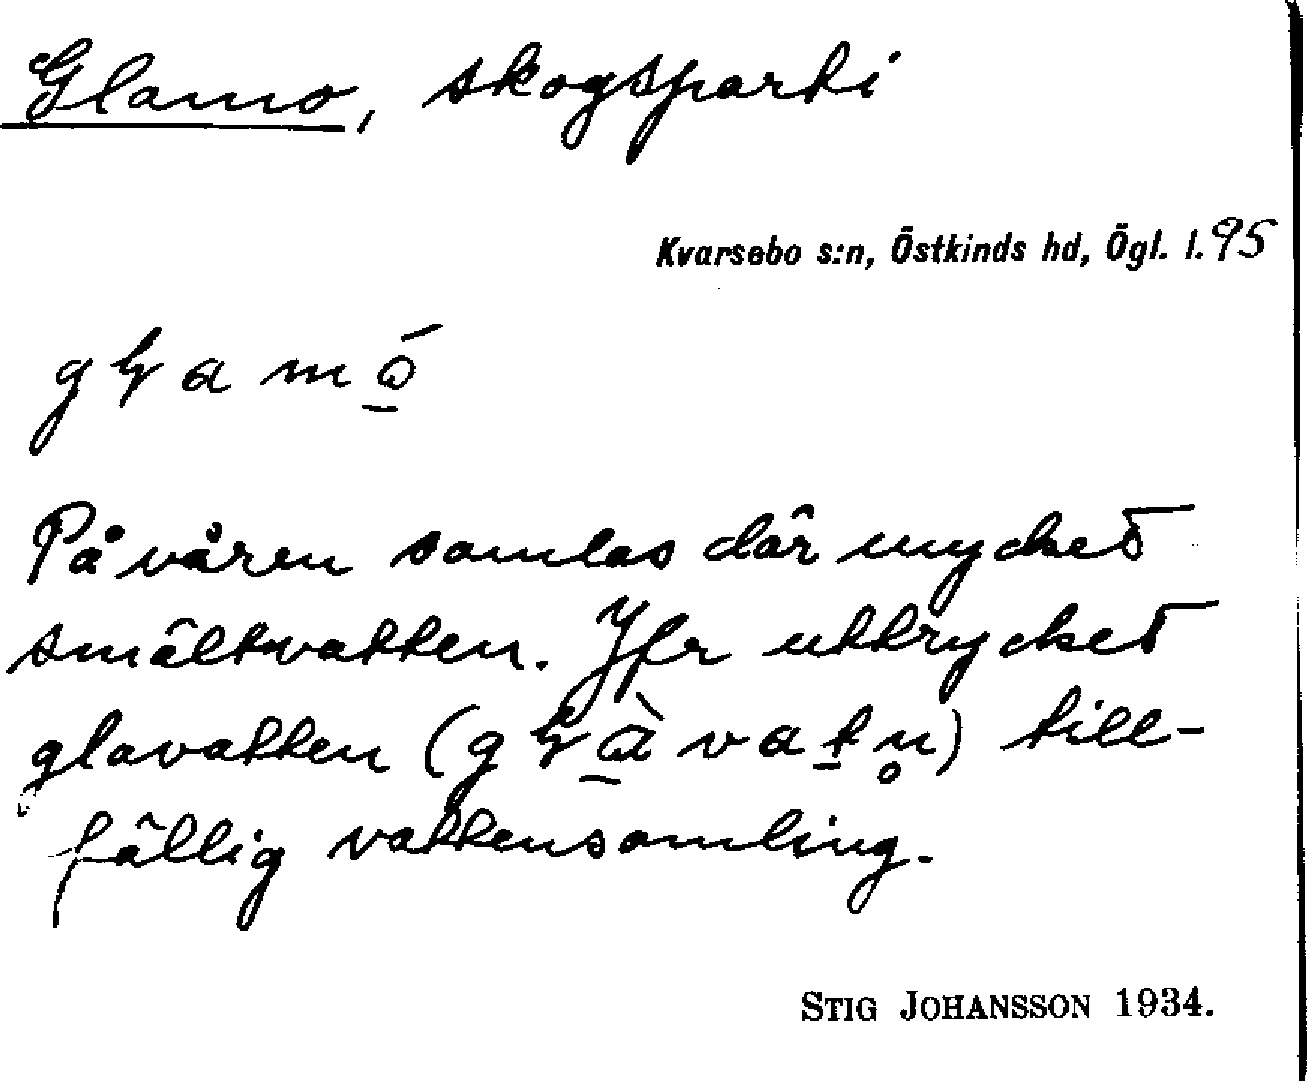 Glamo, skogsparti
Kvarsebo s:n, Östkinds hd, Ögl. l. 95
På våren samlas där mycket
smältvatten. Jfr uttrycket
glavatten (gɭà̠vat̠n̥) till-
fällig vattensamling.
STIG JOHANSSON 1934.